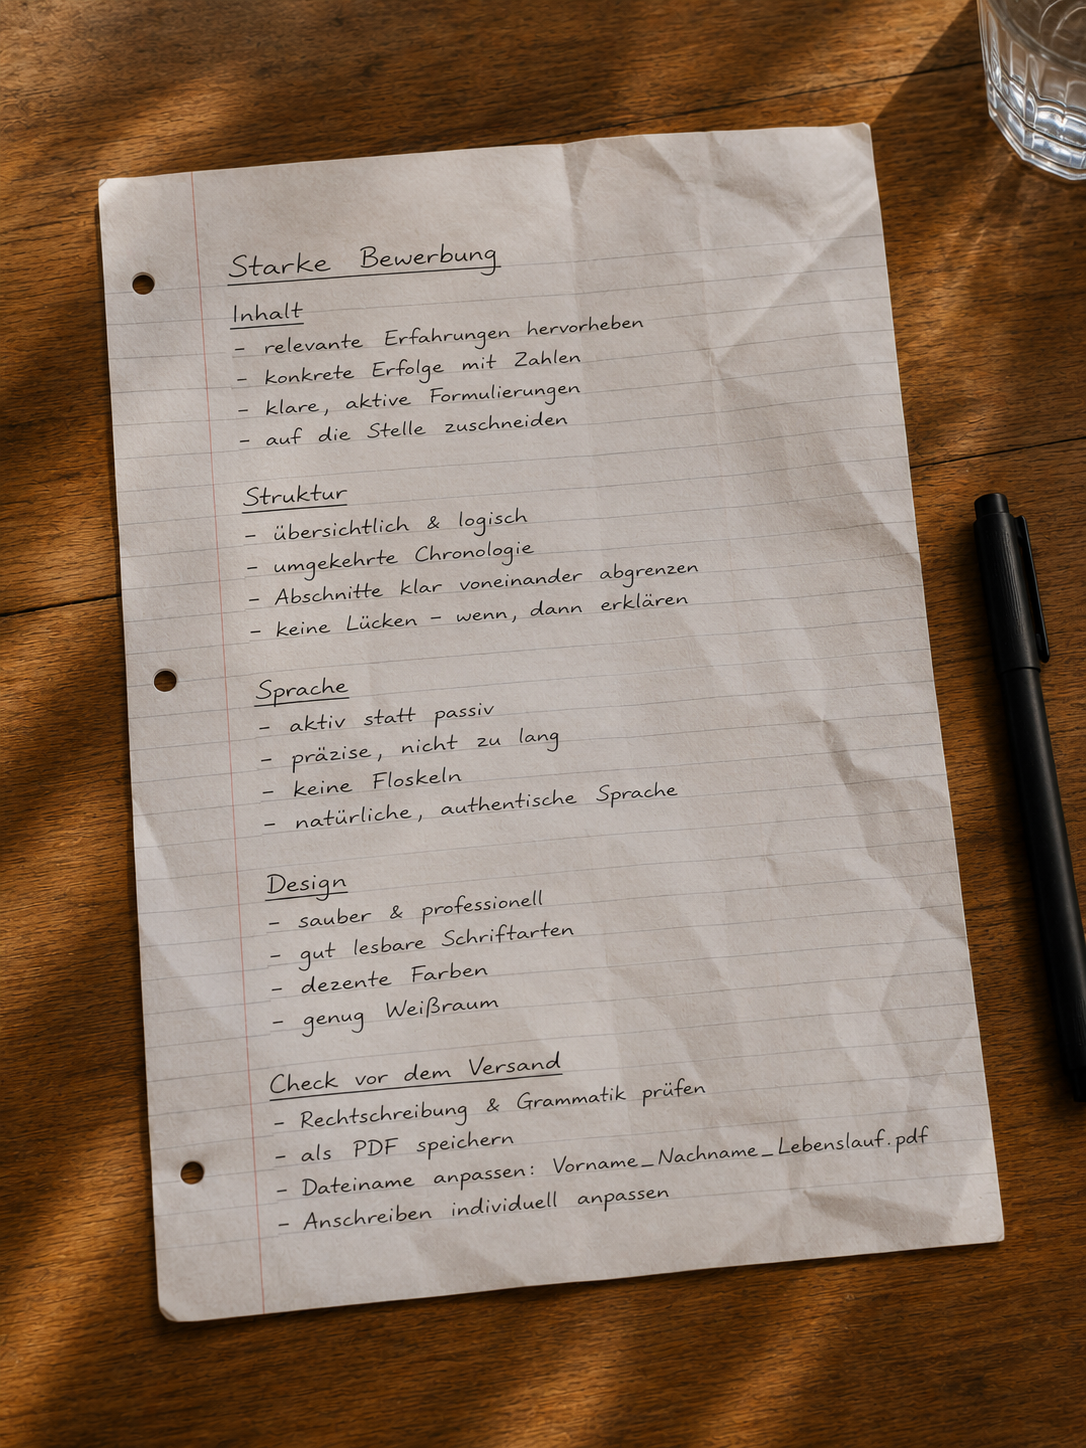 Starke Bewerbung
Inhalt
- relevante Erfahrungen hervorheben
- konkrete Erfolge mit Zahlen
- klare, aktive Formulierungen
- auf die Stelle zuschneiden
Struktur
- übersichtlich & logisch
- umgekehrte Chronologie
- Abschnitte klar voneinander abgrenzen
- keine Lücken – wenn, dann erklären
Sprache
- aktiv statt passiv
- präzise, nicht zu lang
- keine Floskeln
- natürliche, authentische Sprache
Design
- sauber & professionell
- gut lesbare Schriftarten
- dezente Farben
- genug Weißraum
Check vor dem Versand
- Rechtschreibung & Grammatik prüfen
- als PDF speichern
- Dateiname anpassen: Vorname_Nachname_Lebenslauf.pdf
- Anschreiben individuell anpassen